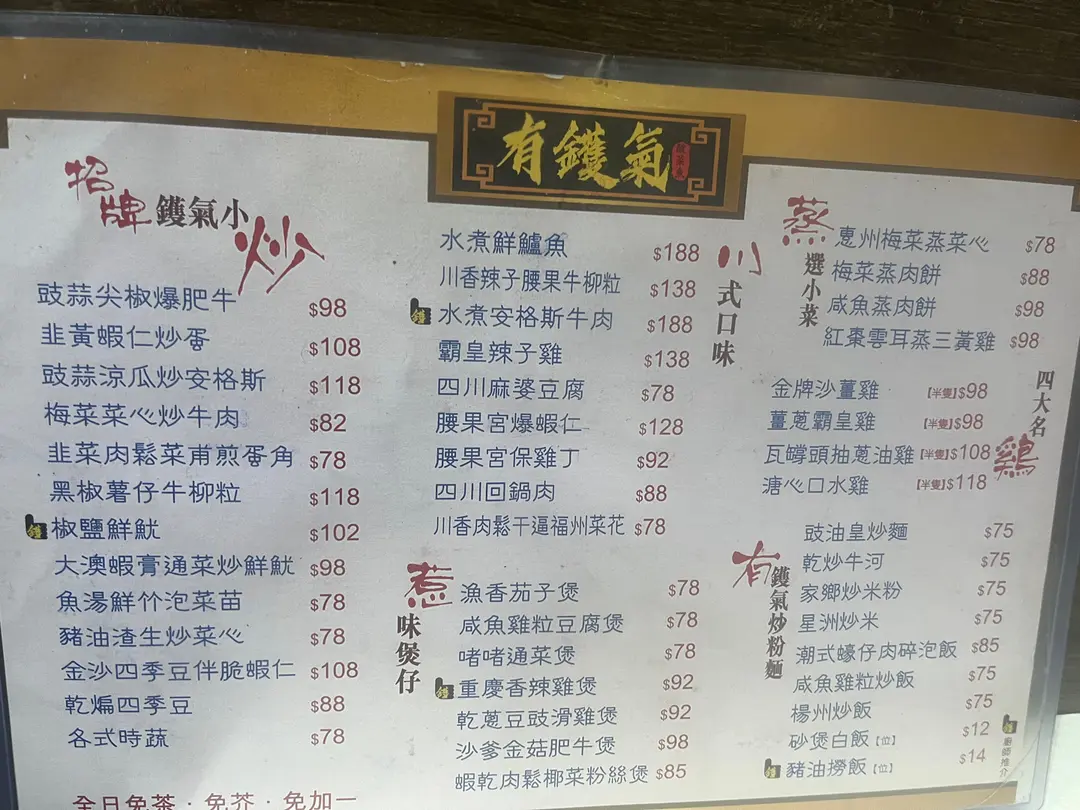 有鑊氣
招牌鑊氣小炒
豉蒜尖椒爆肥牛 $98
韭黃蝦仁炒蛋 $108
豉蒜涼瓜炒安格斯 $118
梅菜菜心炒牛肉 $82
韭菜肉鬆菜甫煎蛋角 $78
黑椒薯仔牛柳粒 $118
鑊 椒鹽鮮魷 $102
大澳蝦膏通菜炒鮮魷 $98
魚湯鮮竹泡菜苗 $78
豬油渣生炒菜心 $78
金沙四季豆伴脆蝦仁 $108
乾煸四季豆 $88
各式時蔬 $78
全日免茶·免芥·免加一
川式口味
水煮鮮鱸魚 $188
川香辣子腰果牛柳粒 $138
鑊 水煮安格斯牛肉 $188
霸皇辣子雞 $138
四川麻婆豆腐 $78
腰果宮爆蝦仁 $128
腰果宮保雞丁 $92
四川回鍋肉 $88
川香肉鬆干逼福州菜花 $78
惹味煲仔
漁香茄子煲 $78
咸魚雞粒豆腐煲 $78
啫啫通菜煲 $78
鑊 重慶香辣雞煲 $92
乾蔥豆豉滑雞煲 $92
沙爹金菇肥牛煲 $98
蝦乾肉鬆椰菜粉絲煲 $85
蒸選小菜
惠州梅菜蒸菜心 $78
梅菜蒸肉餅 $88
咸魚蒸肉餅 $98
紅棗雲耳蒸三黃雞 $98
四大名鷄
金牌沙薑雞 【半隻】$98
薑蔥霸皇雞 【半隻】$98
瓦罉頭抽蔥油雞 【半隻】$108
溏心口水雞 【半隻】$118
有鑊氣炒粉麵
豉油皇炒麵 $75
乾炒牛河 $75
家鄉炒米粉 $75
星洲炒米 $75
潮式蠔仔肉碎泡飯 $85
咸魚雞粒炒飯 $75
楊州炒飯 $75
砂煲白飯【位】 $12
鑊 豬油撈飯【位】 $14
鑊 廚師推介